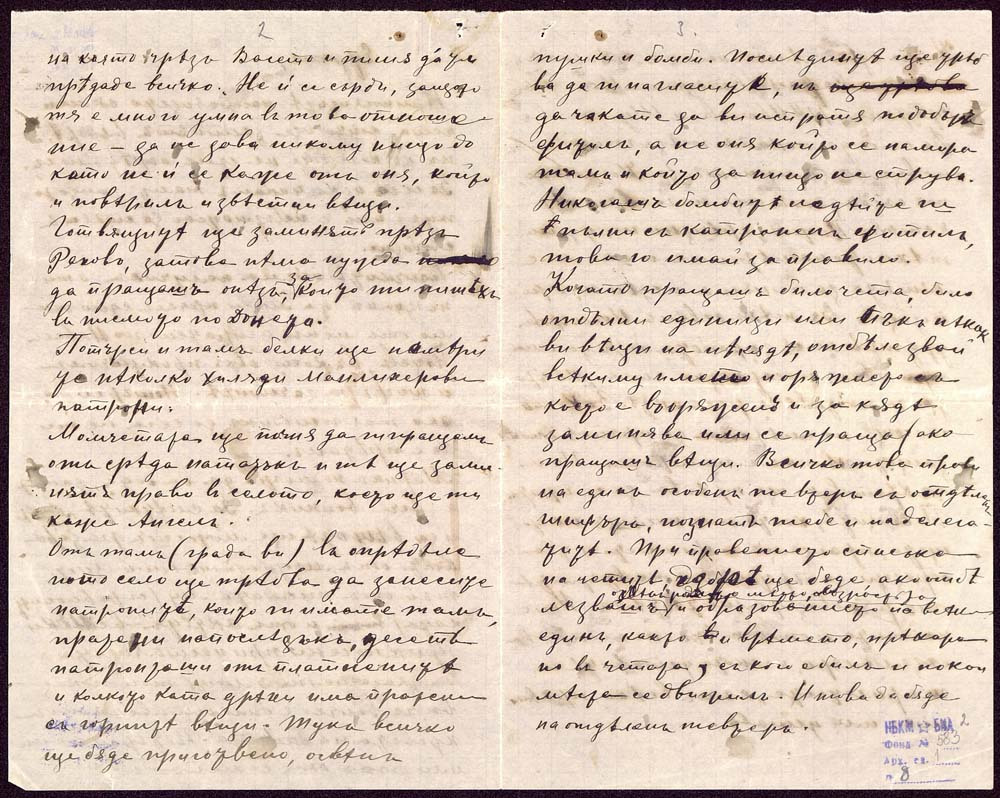 2
на която чрѣзъ Басето и тебя да ѝ
прѣдаде всичко. Не ѝ се сърди, защото
тя е много умна въ това отноше-
ние – да не дава никому нищо до
като не ѝ се каже отъ оня, който
ѝ повѣрилъ извѣстни вѣщи.
Готвящитѣ ще заминатъ прѣзъ
Рахово, затова нѣма нужда
да пращашъ онѣзъ, за които ти пишѣхъ
въ писмото по Донета.
Потърси и тамъ белки ще намѣри-
те нѣколко хиляди манлихерови
патрони.
Момчетата ще почна да ти пращамъ
отъ срѣда нататъкъ и тѣ ще зами-
нятъ право въ селото, което ще ти
каже Ангелъ.
Отъ тамъ (града ви) въ опрѣдѣле-
ното село ще трѣбва да занесите
патронитѣ, които ги имате тамъ,
пратени напослѣдъкъ, десетъ
патрондаши отъ платненитѣ
и колкото ката дрѣхи има пратени
съ горнитѣ вѣщи. Тука всичко
ще бѫде приготвено, освѣнъ
3.
пушки и бомби. Послѣднитѣ ще трѣб-
ва да ги нагласите, нъ
да чакате да ви испратя по добъръ
фитилъ, а не оня който се намира
тамъ и който за нищо не струва.
Никогашъ бомбитѣ недѣйте ги
пълни съ катраненъ фитилъ,
това го имай за правило.
Когато пращашъ било чета, било
отдѣлни единици или пъкъ нѣкак-
ви вѣщи на нѣкадѣ, отбѣлезвай
всѣкиму името и орѫжието съ
което е въорѫженъ и за кѫдѣ
заминява или се праща (ако
пращашъ вѣщи. Всичко това прави
на единъ особенъ тевтеръ съ отдѣленъ
шифъръ, познатъ тебе и на делега-
титѣ. При правението списъка
на четитѣ добрѣ ще бѫде, ако отбѣ-
лезвашъ и образованието на всѣ-
единъ, както и врѣмето, прѣкара-
но въ четата, съ кого е билъ и по кои
мѣста се движилъ. И това да бѫде
на отдѣленъ тевтеръ.
НБКМ БИА 2
Фонд № 583
Арх. ед. 1
л. 8